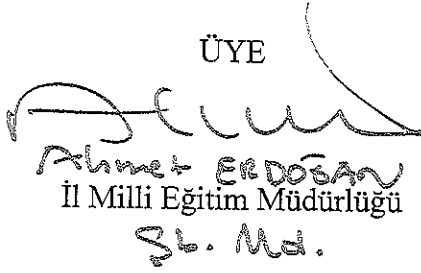 ÜYE
Ahmet ERDOĞAN
İl Milli Eğitim Müdürlüğü
Şb. Md.